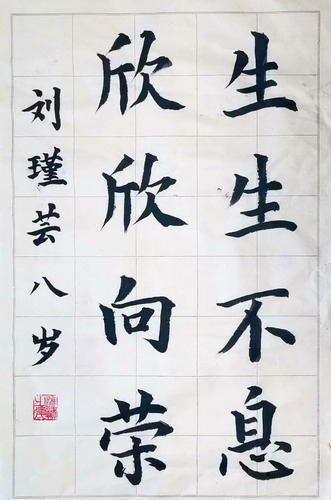 生生不息
欣欣向荣
刘瑾芸八岁